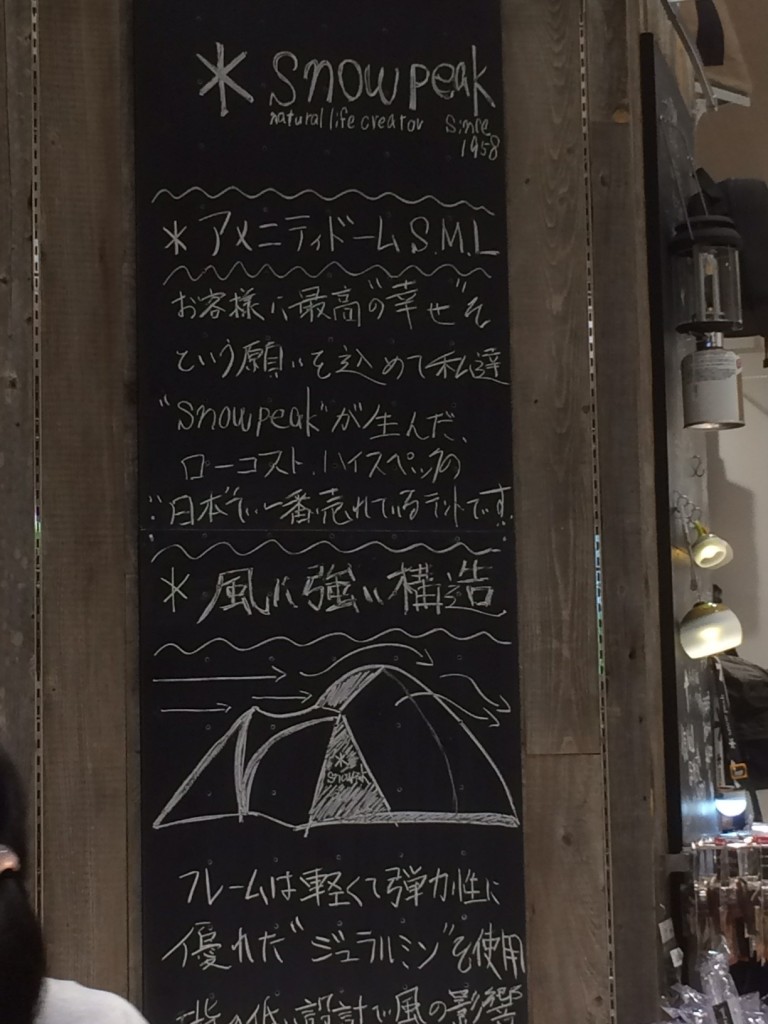 * snow peak
natural life creator since
1958
* アメニティドーム S.M.L
お客様に最高の"幸せ"を
という願いを込めて私達
"snow peak"が生んだ、
ローコスト、ハイスペックの
"日本で一番売れているテントです。
* 風に強い構造
* snow peak
フレームは軽くて弾力性に
優れた"ジュラルミン"を使用
背の低い設計で風の影響